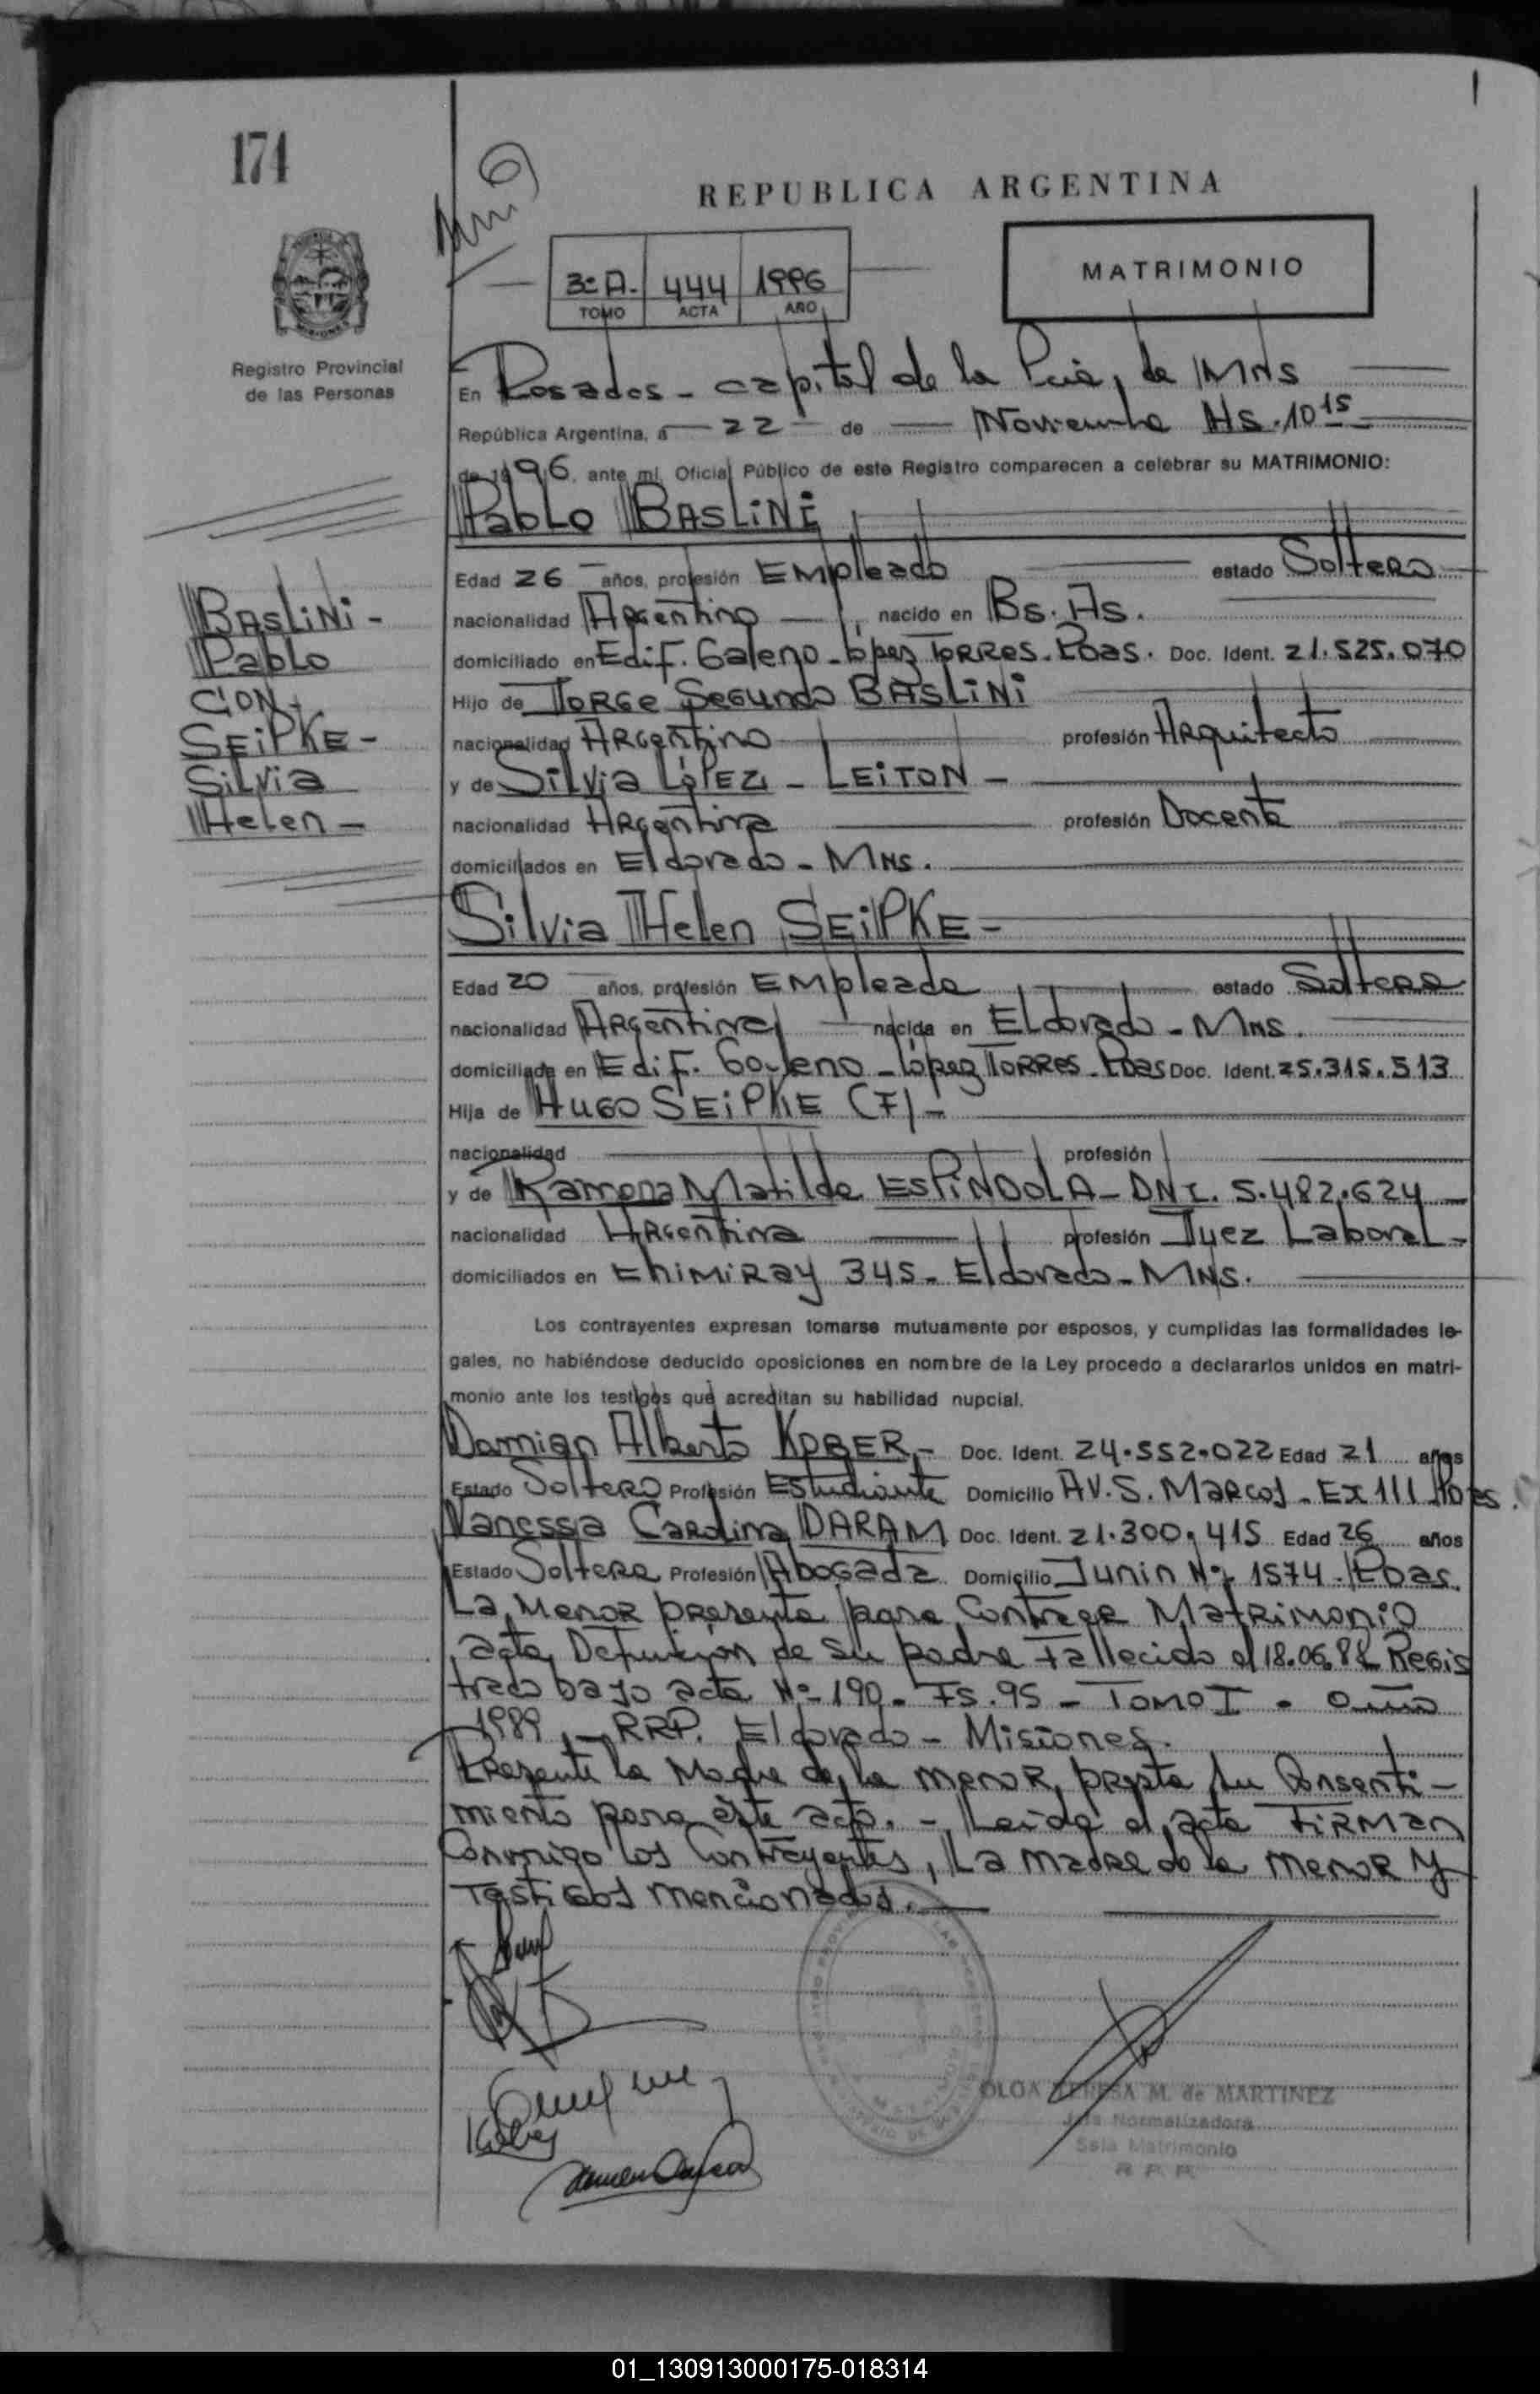 174
REPUBLICA ARGENTINA
MATRIMONIO
3º A. 444 1996
TOMO ACTA AÑO
Registro Provincial
de las Personas
En Posadas - capital de la Pcia, de MNS
República Argentina, a 22 de Noviembre Hs. 10 15
de 1996, ante mí, Oficial Público de este Registro comparecen a celebrar su MATRIMONIO:
Pablo BASLINI
Edad 26 años, profesión Empleado estado Soltero
nacionalidad Argentino nacido en Bs. As.
domiciliado en Edif. Galeno - López Torres - Pdas. Doc. Ident. 21.525.070
Hijo de Jorge Segundo BASLINI
nacionalidad Argentino profesión Arquitecto
y de Silvia López - LEITON -
nacionalidad Argentina profesión Docente
domiciliados en Eldorado - MNS.
BASLINI -
Pablo
CON
SEIPKE -
Silvia
Helen -
Silvia Helen SEIPKE -
Edad 20 años, profesión Empleada estado Soltera
nacionalidad Argentina nacida en Eldorado - MNS.
domiciliada en Edif. Galeno - López Torres - Pdas Doc. Ident. 25.315.513
Hija de Hugo SEIPKE (F) -
nacionalidad profesión
y de Ramona Matilde ESPINDOLA - DNI. 5.482.624
nacionalidad Argentina profesión Juez Laboral -
domiciliados en 345 - Eldorado - MNS.
Los contrayentes expresan tomarse mutuamente por esposos, y cumplidas las formalidades le-
gales, no habiéndose deducido oposiciones en nombre de la Ley procedo a declararlos unidos en matri-
monio ante los testigos que acreditan su habilidad nupcial.
Damian Alberto KOBER - Doc. Ident. 24.552.022 Edad 21 años
Estado Soltero Profesión Estudiante Domicilio AV. S. Marcos - Ex 111
Vanessa Carolina DARAM Doc. Ident. 21.300.415 Edad 26 años
Estado Soltera Profesión Abogada Domicilio Junin Nº 1574 - Pdas.
La menor presenta para contraer Matrimonio
acta Defuncion de su padre Fallecido el 18.06. Regis
trado bajo acta Nº 190 - Fs. 95 - Tomo I - año
1989 - RRP. Eldorado - Misiones.
Presente la Madre de la menor, presta su Consenti-
miento para este acto. - Leida el acta Firman
Conmigo los Contrayentes, La madre de la menor y
Testigos mencionados.
OLGA TERESA M. de MARTINEZ
Jefa Normalizadora
Sala Matrimonio
R. P. P.
01_130913000175-018314